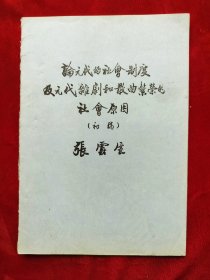 論元代的社會制度
及元代雜劇和散曲繁榮的
社會原因
(初稿)
張雲生